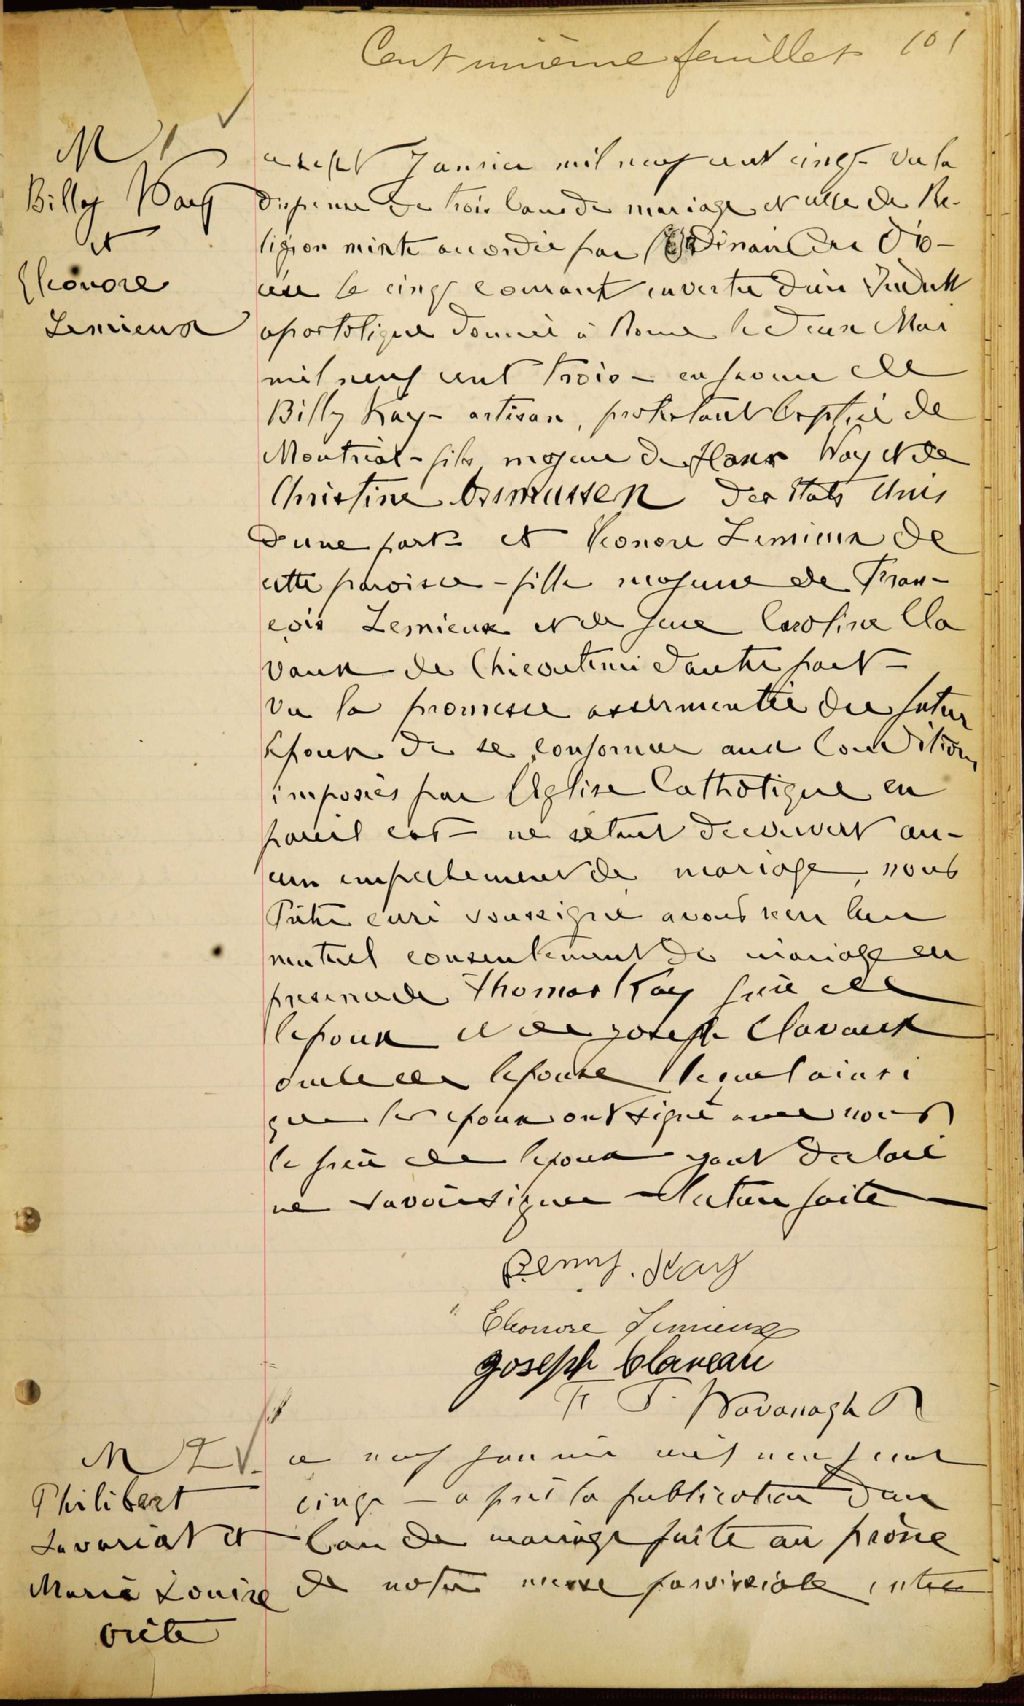 Cent unième feuillet 101
M 1
Billy Kay
et
Eléonore
Lemieux
Ce sept Janvier mil neuf cent cinq - vu la
dispense de trois bans de mariage et celle de Re-
ligion mixte accordée par l'Ordinaire du Dio-
cèse le cinq courant en vertu d'un Indult
apostolique donné à Rome le deux Mai
mil neuf cent trois - en faveur de
Billy Kay - artisan, protestant baptisé de
Montréal - fils majeur de Hans Kay et de
Christine Asmussen des Etats Unis
d'une part et Eleonore Lemieux de
cette paroisse - fille majeure de Fran-
çois Lemieux et de feue Caroline Cla
vaux de Chicoutimi d'autre part -
vu la promesse assermentée du futur
Epoux de se conformer aux Conditions
imposées par l'Eglise Catholique en
pareil cas - ne s'étant découvert au-
cun empêchement de mariage, nous
Prêtre curé soussigné avons reçu leur
mutuel consentement de mariage en
presence de Thomas Kay frère de
l'epoux et de Joseph Claveaux
oncle de l'epouse lequel ainsi
que les epoux ont signé avec nous
le frère de l'epoux ayant declaré
ne savoir signer - lecture faite
Kay
Eleonore Lemieux
Joseph Claveau
F Kavanagh
M 2
Philibert
Savariat et
Marie Louise
Ce neuf Janvier mil neuf cent
cinq - après la publication d'un
ban de mariage faite au prône
de notre messe paroissiale entre